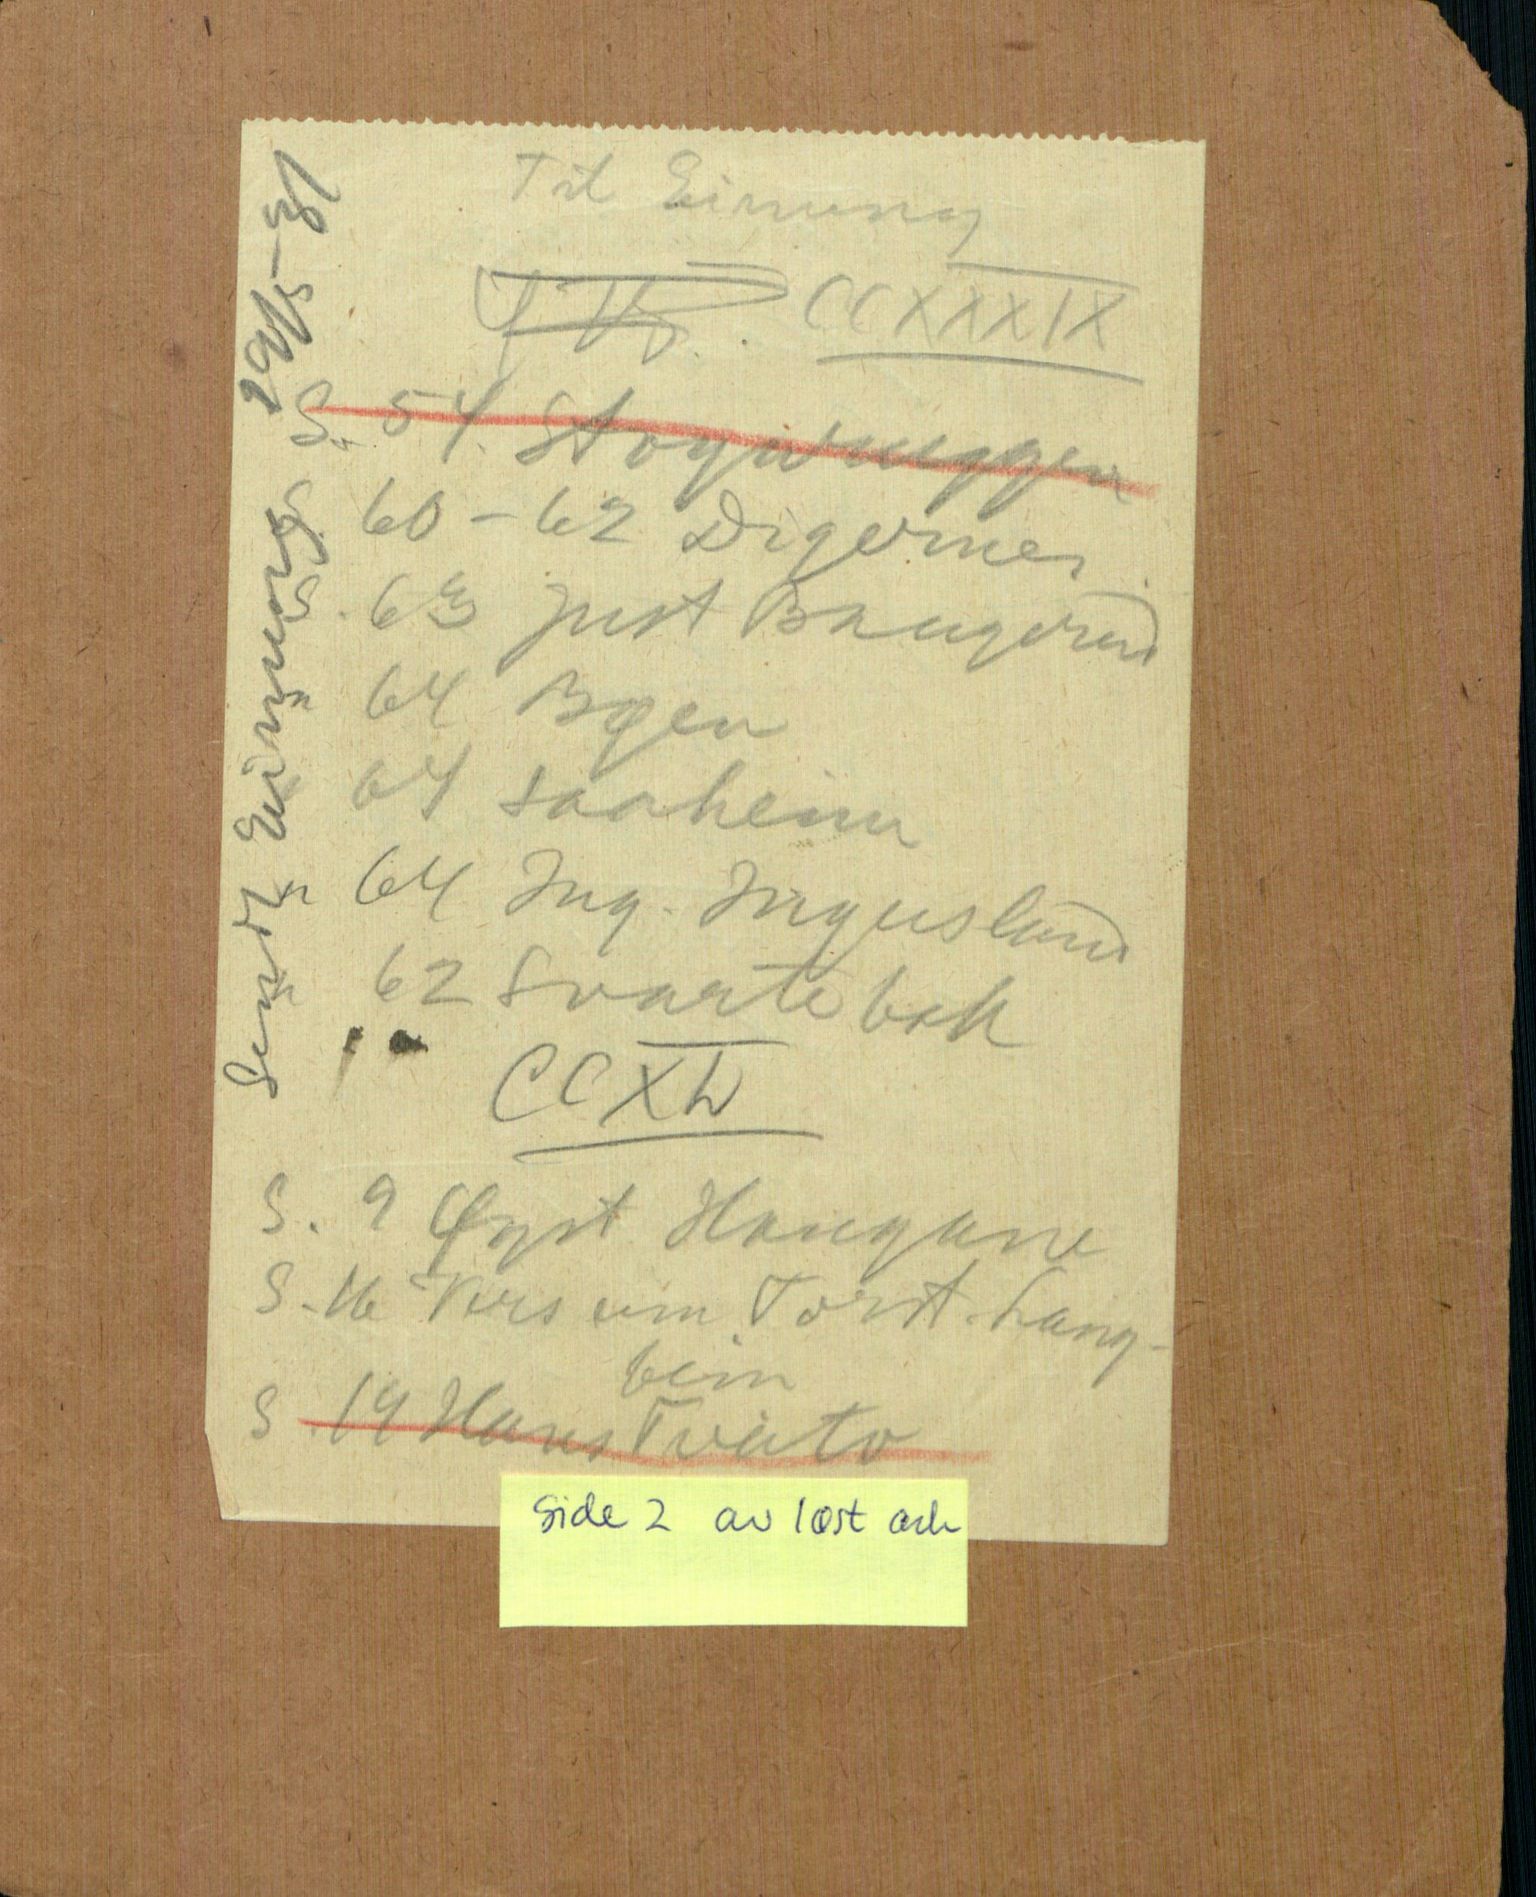 Til Einung
CCXXXIX
S. 54. Støyvneggen
60-62 Digernes
S. 63 Just Baugerud
" 64 Bøen
" 64 Saaheim
" 64 Ing. Ingusland
" 62 Svartebekk
CCXL
S. 9 Øyst Haugane
S. 16 Vers um Torst. Lang-
bein
S. 14 Hans Tveito
Sendt Einung 29/5-31
Side 2 av løst ark